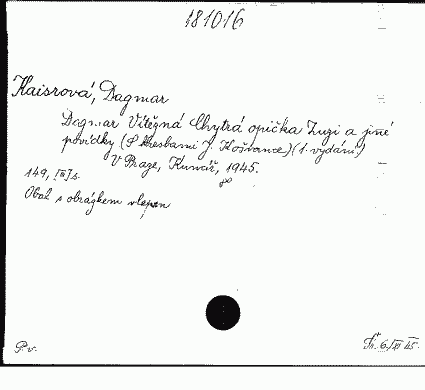 181016
Kaisrová, Dagmar
Dagmar Vítězná Chytrá opička Zuzi a jiné
povídky (S kresbami J. Košvance) (1. vydání)
V Praze, Kuncíř, 1945.
8°
149, [III] s.
Obal s obrázkem vlepen
P.v. Př. 6/XI 45.